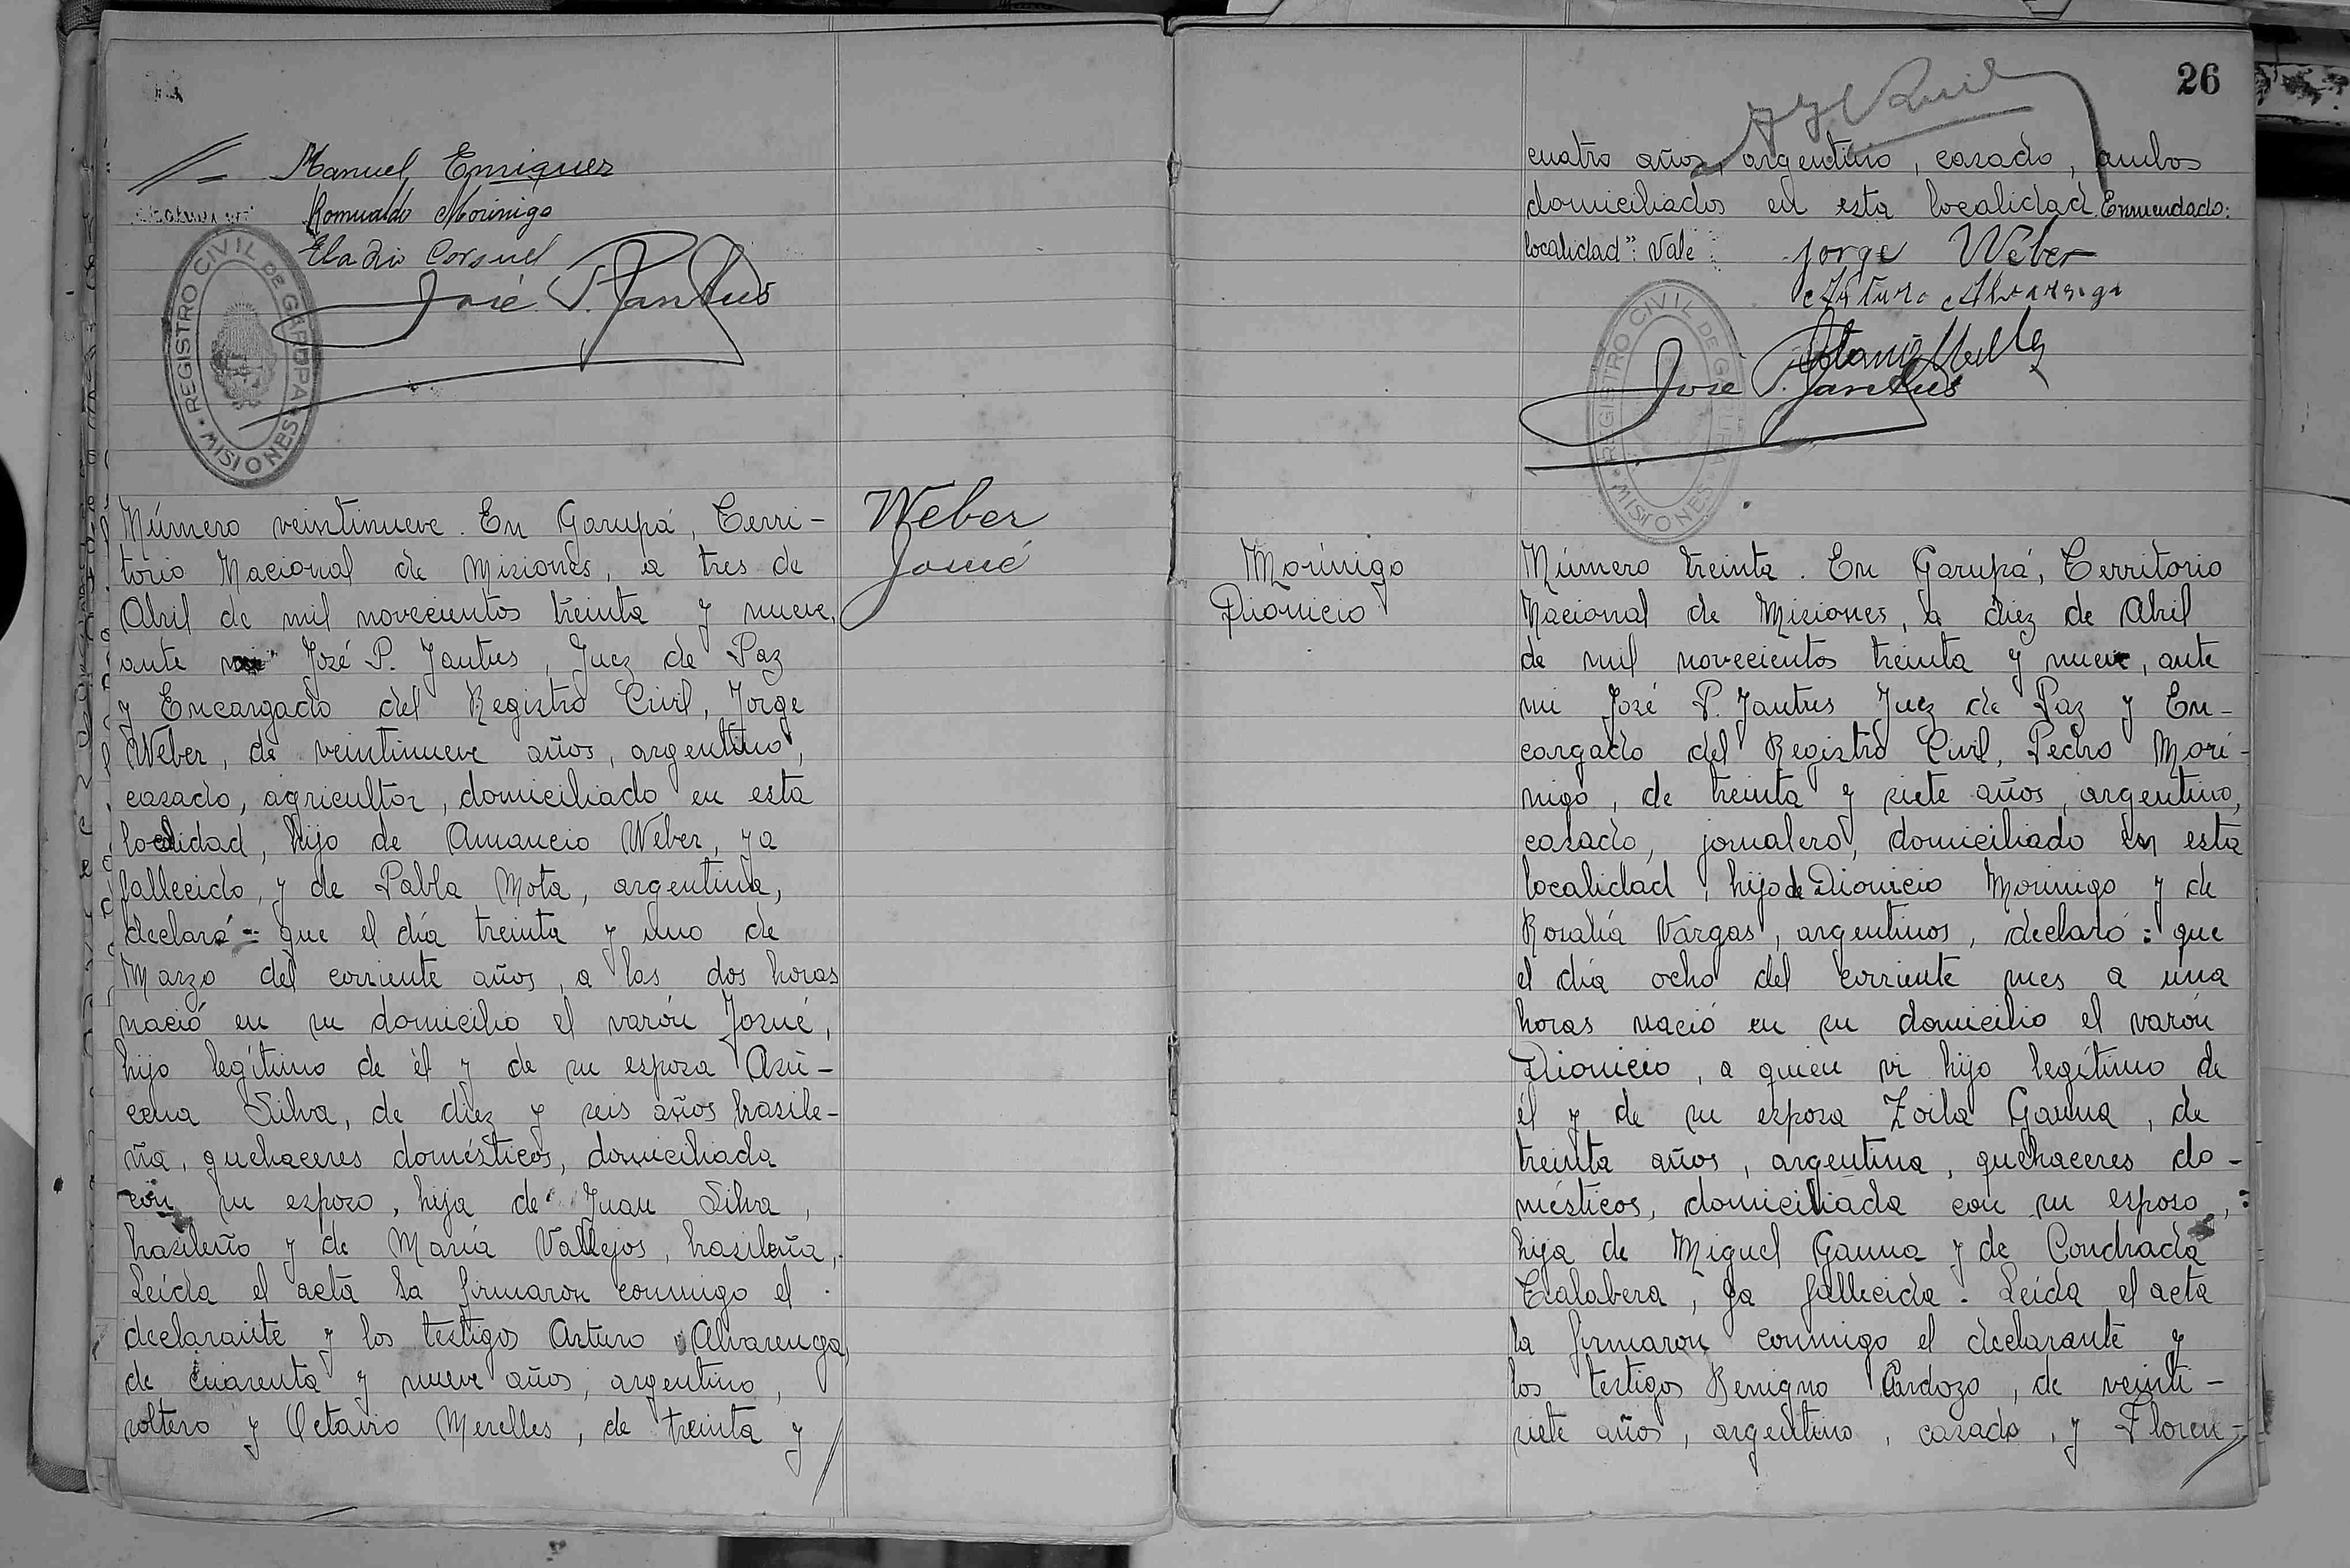 Manuel Enriquez
Romualdo Morinigo
Eladio Coronel
José P. Jantus
REGISTRO CIVIL DE GARUPA
MISIONES
Número veintinueve. En Garupá, Terri-
torio Nacional de Misiones, a tres de
Abril de mil novecientos treinta y nueve,
ante mi José P. Jantus, Juez de Paz
y Encargado del Registro Civil, Jorge
Weber, de veintinueve años, argentino,
casado, agricultor, domiciliado en esta
localidad, hijo de Amancio Weber, ya
fallecido, y de Pabla Mota, argentina,
declaró: que el día treinta y uno de
Marzo del corriente años, a las dos horas
nació en su domicilio el varón Josué,
hijo legítimo de él y de su esposa Azu-
cena Silva, de diez y seis años brasile-
ña, quehaceres domésticos, domiciliada
con su esposo, hija de Juan Silva,
brasileño y de María Vallejos, brasileña,
Leída el acta la firmaron conmigo el
declarante y los testigos Arturo Alvarenga,
de cuarenta y nueve años, argentino,
soltero y Octavio Merelles, de treinta y
Weber
Josué
26
cuatro años, argentino, casado, ambos
domiciliados en esta localidad. Enmendado:
localidad": Vale
Jorge Weber
Arturo Alvarenga
José P. Jantus
REGISTRO CIVIL DE GARUPA
MISIONES
Morinigo
Dionicio
Número treinta. En Garupá, Territorio
Nacional de Misiones, a diez de Abril
de mil novecientos treinta y nueve, ante
mi José P. Jantus Juez de Paz y En-
cargado del Registro Civil, Pedro Mori-
nigo, de treinta y siete años, argentino,
casado, jornalero, domiciliado en esta
localidad, hijo de Dionicio Morinigo y de
Rosalía Vargas, argentinos, declaró: que
el día ocho del corriente mes a una
horas nació en su domicilio el varón
Dionicio, a quien vi hijo legítimo de
él y de su esposa Zoila Gauna, de
treinta años, argentina, quehaceres do-
mésticos, domiciliada con su esposo,
hija de Miguel Gauna y de Condrada
Calabera, ya fallecida. Leída el acta
la firmaron conmigo el declarante y
los testigos Benigno Cardozo, de veinti-
siete años, argentino, casado, y Floren-